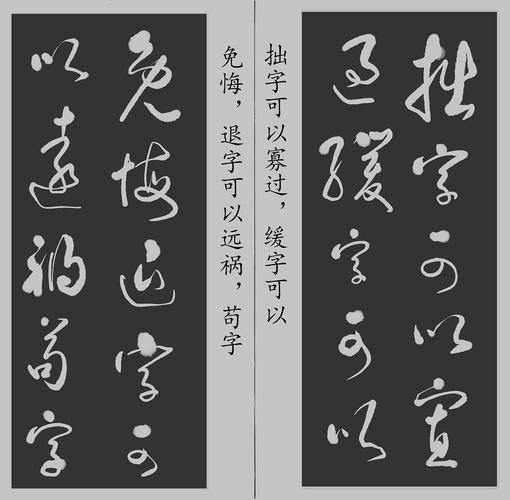 拙字可以寡
過緩字可以
拙字可以寡过，缓字可以
免悔，退字可以远祸，苟字
免悔退字可
以遠禍苟字